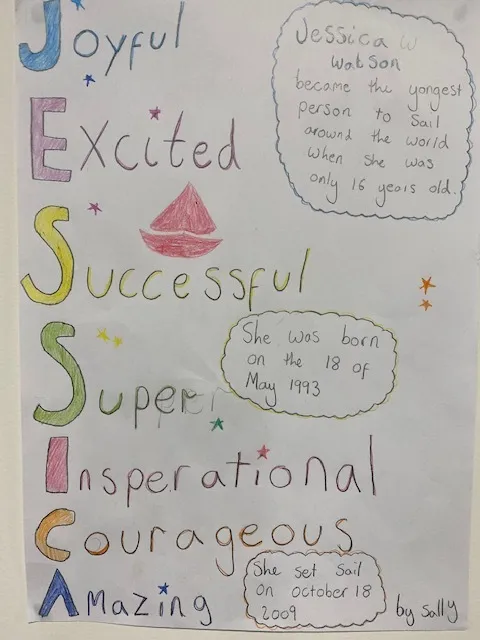 Joyful
Jessica W
Watson
became the yongest
person to Sail
around the world
when she was
only 16 years old.
Excited
Successful
She was born
on the 18 of
May 1993
Super
Insperational
Courageous
Amazing
She set sail
on october 18
2009
by Sally